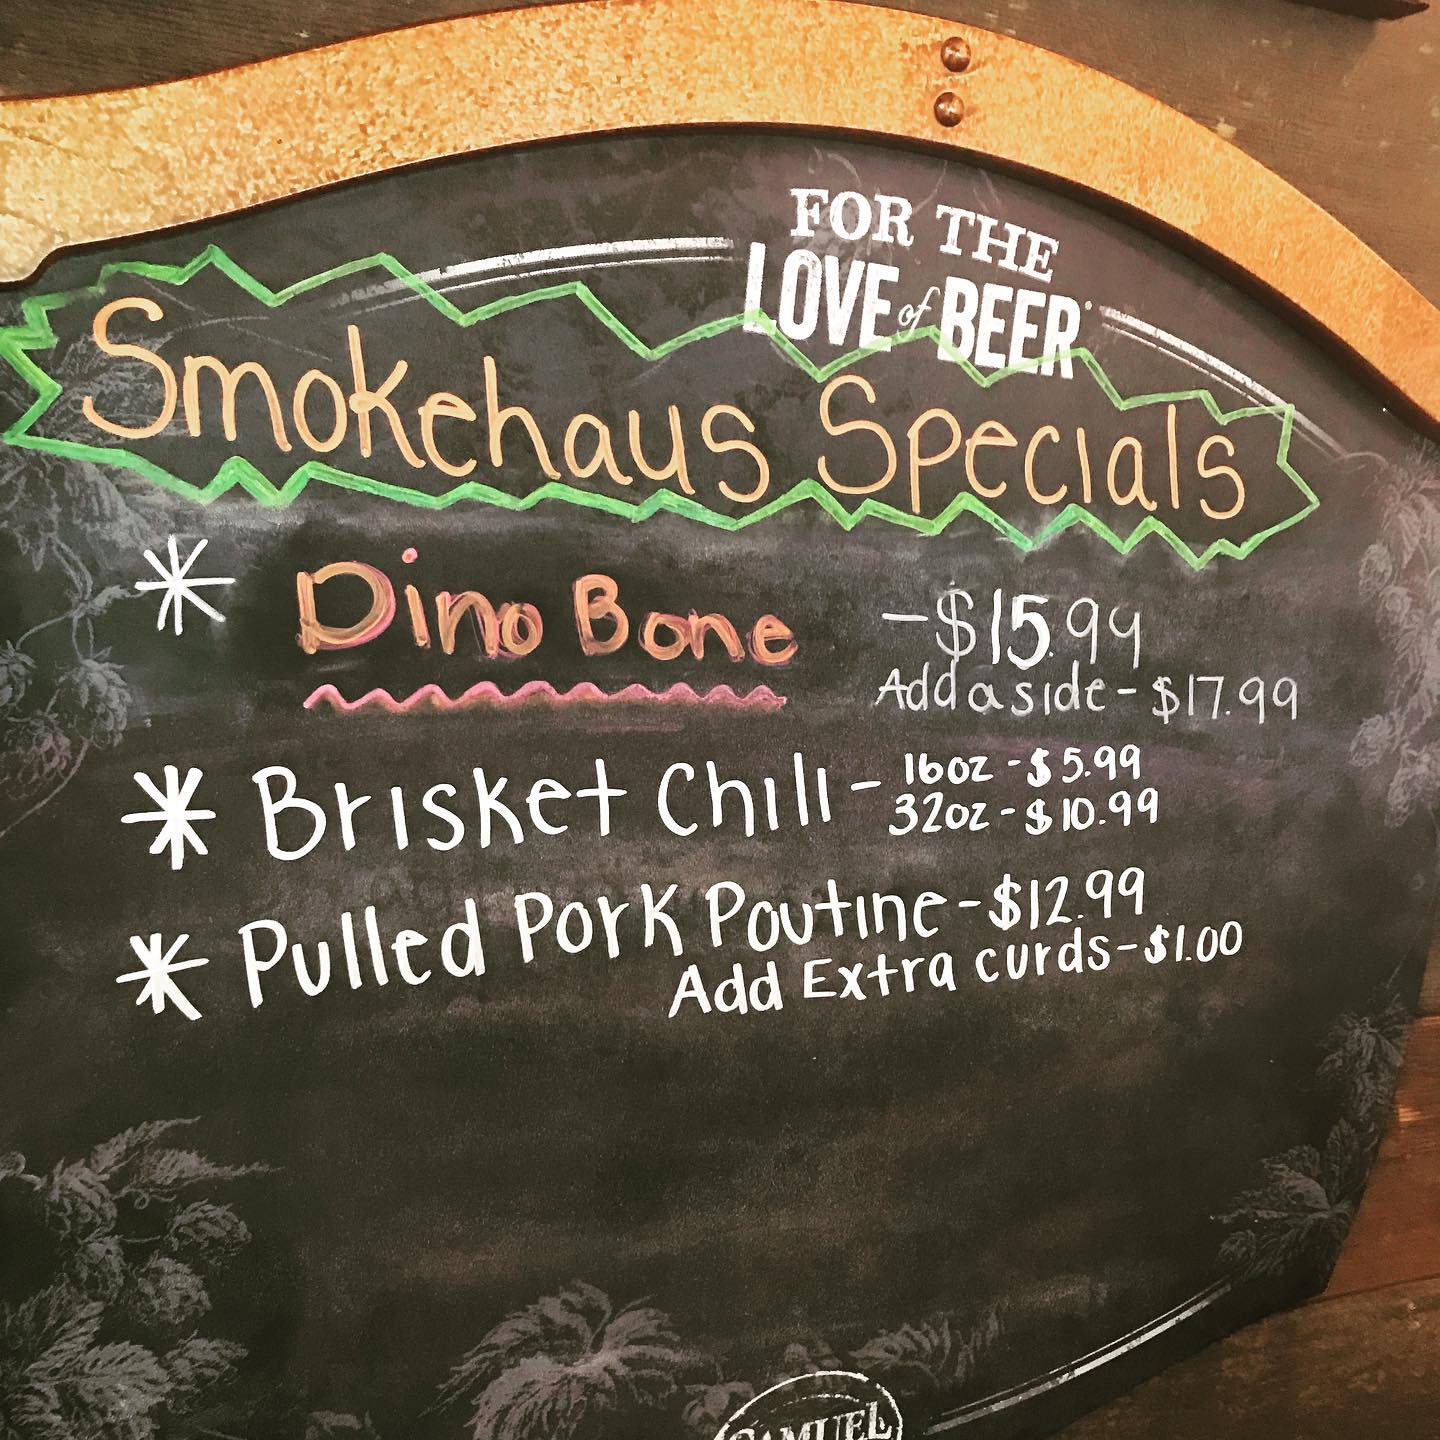 FOR THE
LOVE of BEER®
Smokehaus Specials
* Dino Bone -$15.99
Add a side - $17.99
* Brisket Chill - 16oz - $5.99
32oz - $10.99
* Pulled Pork Poutine - $12.99
Add Extra curds - $1.00
SAMUEL